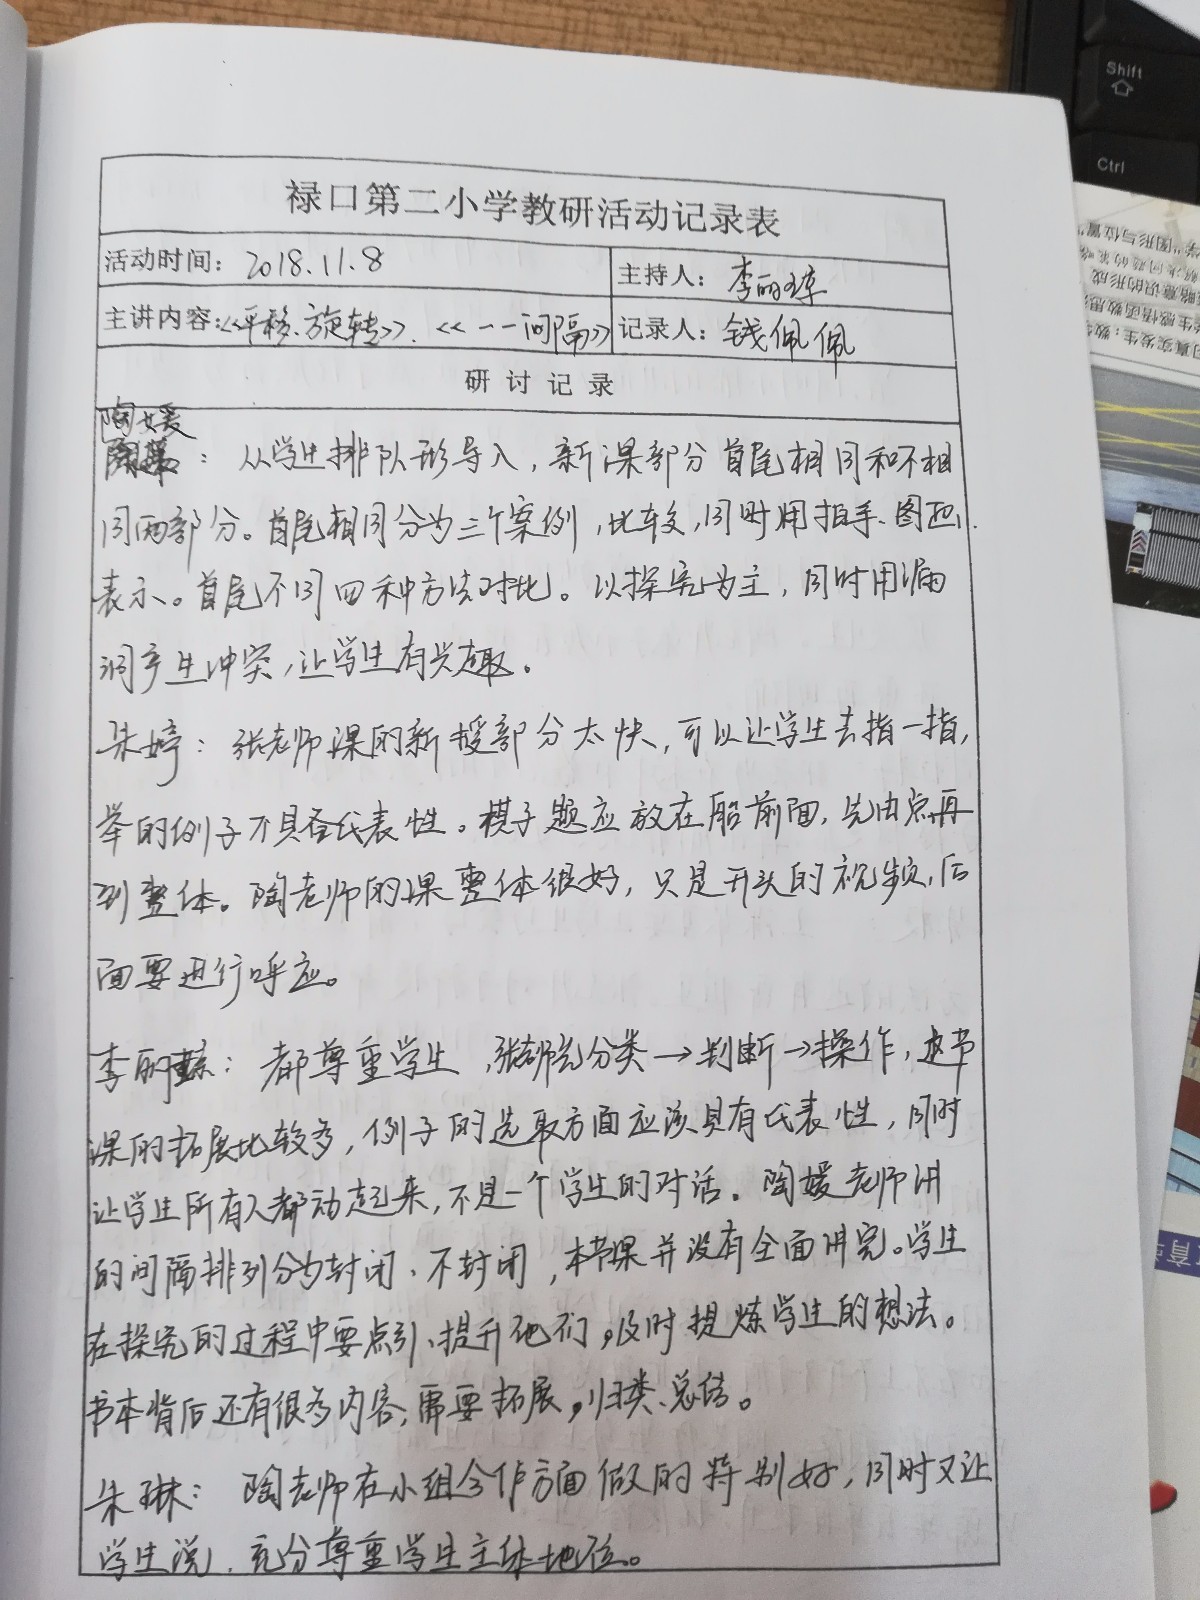 Shift
Ctrl
禄口第二小学教研活动记录表
活动时间：2018.11.8
主持人：李丽琼
主讲内容：《平移、旋转》、《一一间隔》
记录人：钱佩佩
研讨记录
陶媛
：从学生排队形导入，新课部分首尾相同和不相
同两部分。首尾相同分为三个案例，比较，同时用拍手、图画
表示。首尾不同四种方法对比。以探究为主，同时用漏
洞产生冲突，让学生有兴趣。
朱婷：张老师课的新授部分太快，可以让学生去指一指，
举的例子不具备代表性。棋子题应放在船前面，先由点再
到整体。陶老师的课整体很好，只是开头的视频，后
面要进行呼应。
李丽琼：都尊重学生，张老师先分类→判断→操作，这节
课的拓展比较多，例子的选取方面应该具有代表性，同时
让学生所有人都动起来，不是一个学生的对话。陶媛老师讲
的间隔排列分为封闭、不封闭，本节课并没有全面讲完。学生
在探究的过程中要点引、提升他们，及时提炼学生的想法。
书本背后还有很多内容，需要拓展，归类、总结。
朱琳：陶老师在小组合作方面做的特别好，同时又让
学生说，充分尊重学生主体地位。